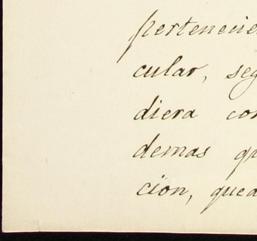 pertenecie
cular, seg
diera con
demas qu
cion, queda